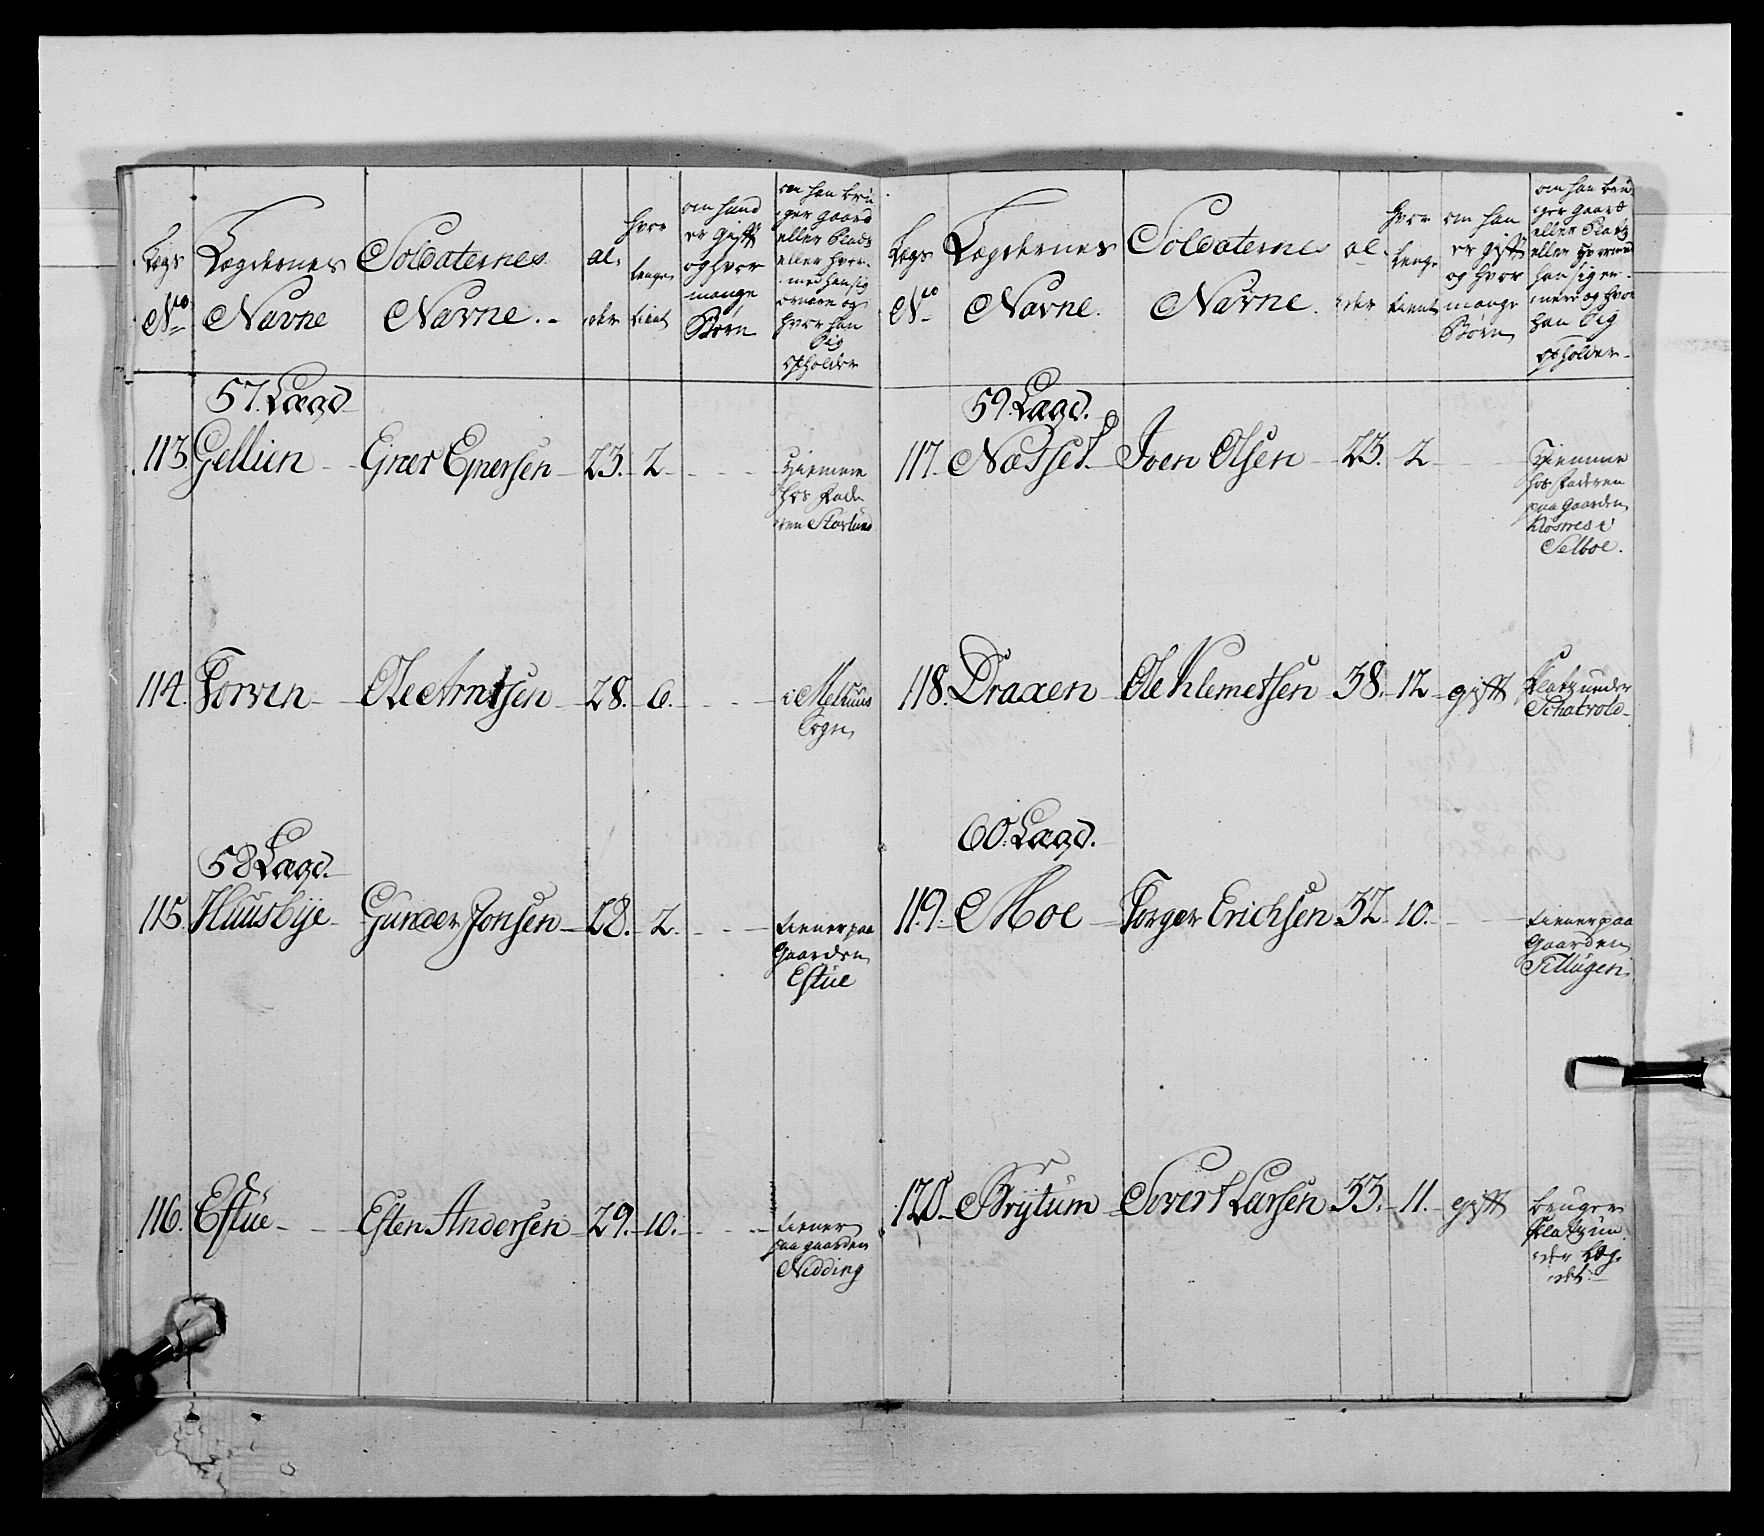 Lægs
No
Lægdernes
Navne
Soldaternes
Navne.
al-
der
hvor
lenge
tient
om hand
er gift
og hvor
mange
Børn
om han bru
ger gaard
eller Plads
eller hvor
med han sig
ernære og
hvor han
sig
opholder
57. Lægd
113. Gellien - Einer Einersen - 23. - 2 - - - Hiemme
hos Fade
ren Storlund
114. Forven - Ole Arntsen - 28. - 6. - - - i Melhuus
Sogn
58 Lægd.
115. Huusbye - Gunder Jonsen - 28. - 2. - - - tiener paa
Gaarden
Estue
116. Estue - - Esten Andersen - 29. - 10. - - - tiener
paa gaarden
Nidding
Lægs
No
Lægdernes
Navne.
Soldaterne
Navne.
al-
der
hvor
lenge
tient
om han
er gift
og hvor
mange
Børn
om han bru
ger gaard
eller Platz
eller hvormed
han sig er-
nære og hvor
han sig
opholder
59. Lægd.
117. Næsset - Iven Olsen - 23. - 2 - - - Hiemme
hos Faderen
paa Gaarden
Kosnes i
Selboe.
118. Draxen - Ole Klemetsen - 38. - 12 - gift Platz under
Schatvold
60. Lægd.
119. Moe - Torger Erichsen 32 - 10. - - - tiener paa
Gaarden
Tillugen.
120. Brytum - Sivert Larsen 33. - 11. - gift bruger
Platz un-
der Læg-
det.